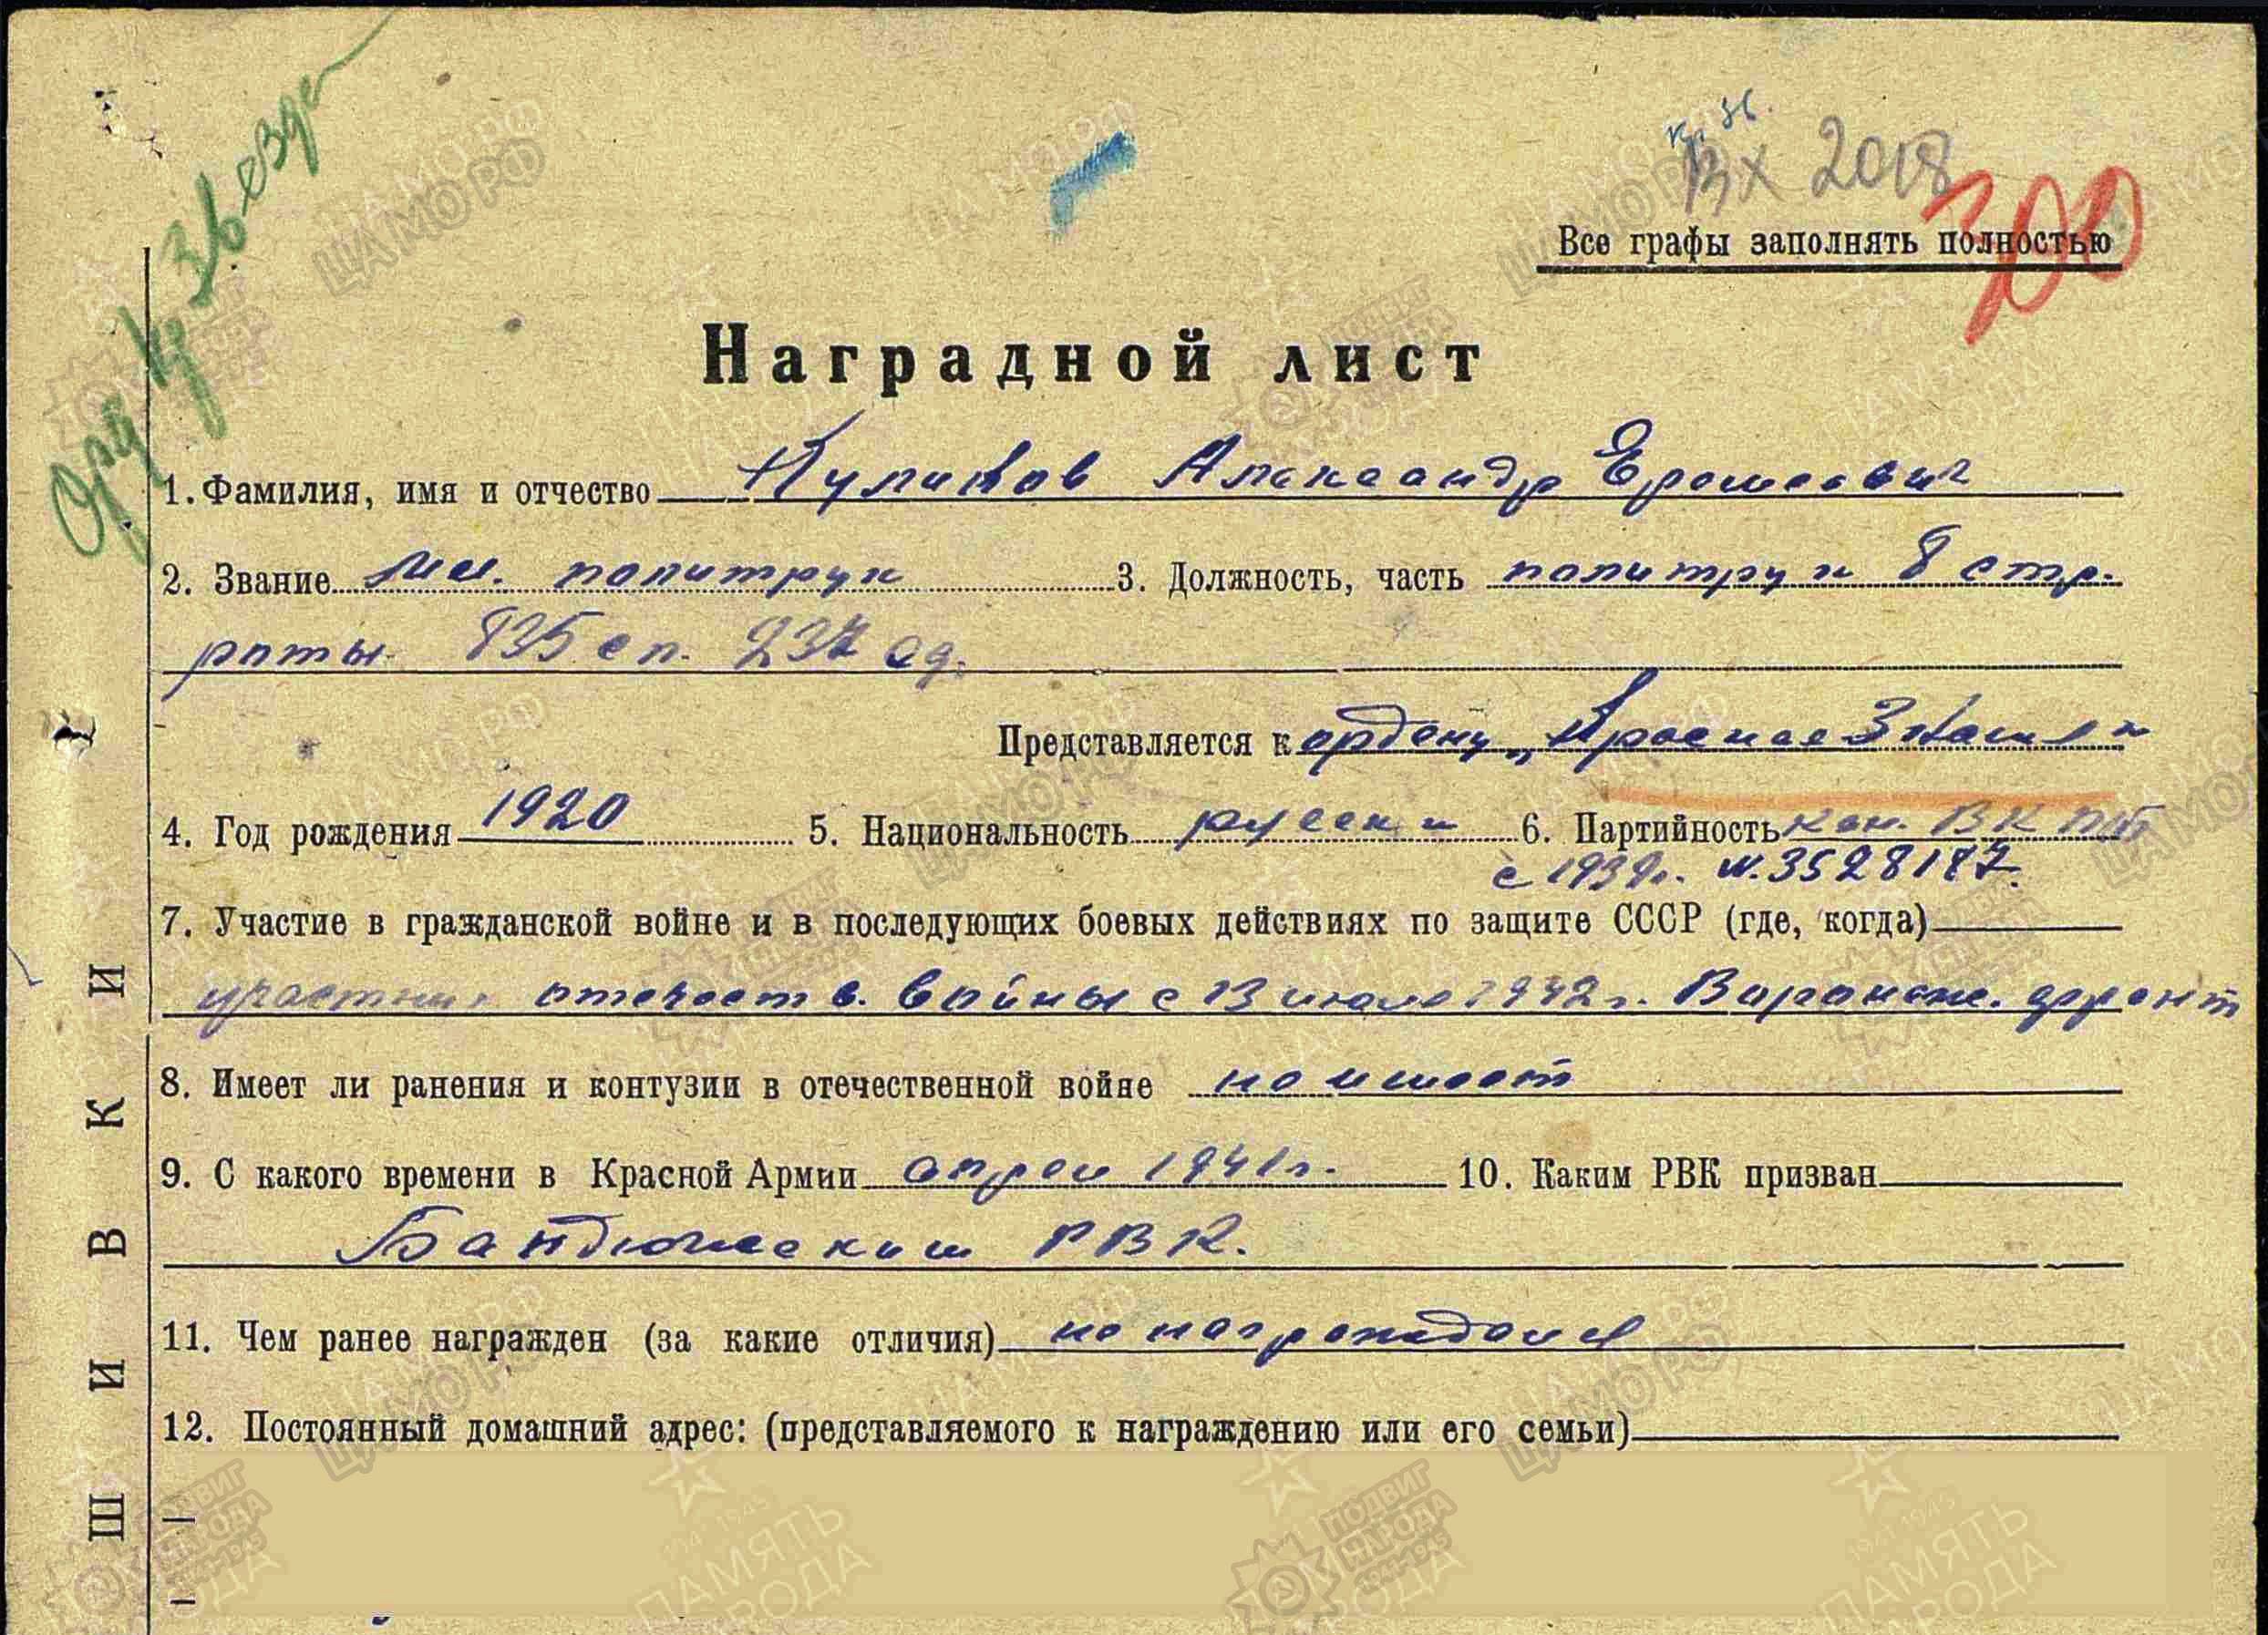 Орд Кр Звезда
Кр Зв.
Вх 2018
Все графы заполнять полностью
Наградной лист
1. Фамилия, имя и отчество Куликов Александр Еремеевич
2. Звание Мл. политрук 3. Должность, часть политрук 8 стр.
роты 835 сп. 237 сд.
Представляется к ордену „Красное Знамя“
4. Год рождения 1920 5. Национальность русски 6. Партийность кан. ВКП(б)
с 1939г. N.3528187.
7. Участие в гражданской войне и в последующих боевых действиях по защите СССР (где, когда)
участник отечеств. войны с 13 июля 1942 г. Воронеж. фронт
8. Имеет ли ранения и контузии в отечественной войне не имеет
9. С какого времени в Красной Армии 1941г. 10. Каким РВК призван
Бандюжским РВК.
11. Чем ранее награжден (за какие отличия) не награждался
12. Постоянный домашний адрес: (представляемого к награждению или его семьи)
ШИВКИ